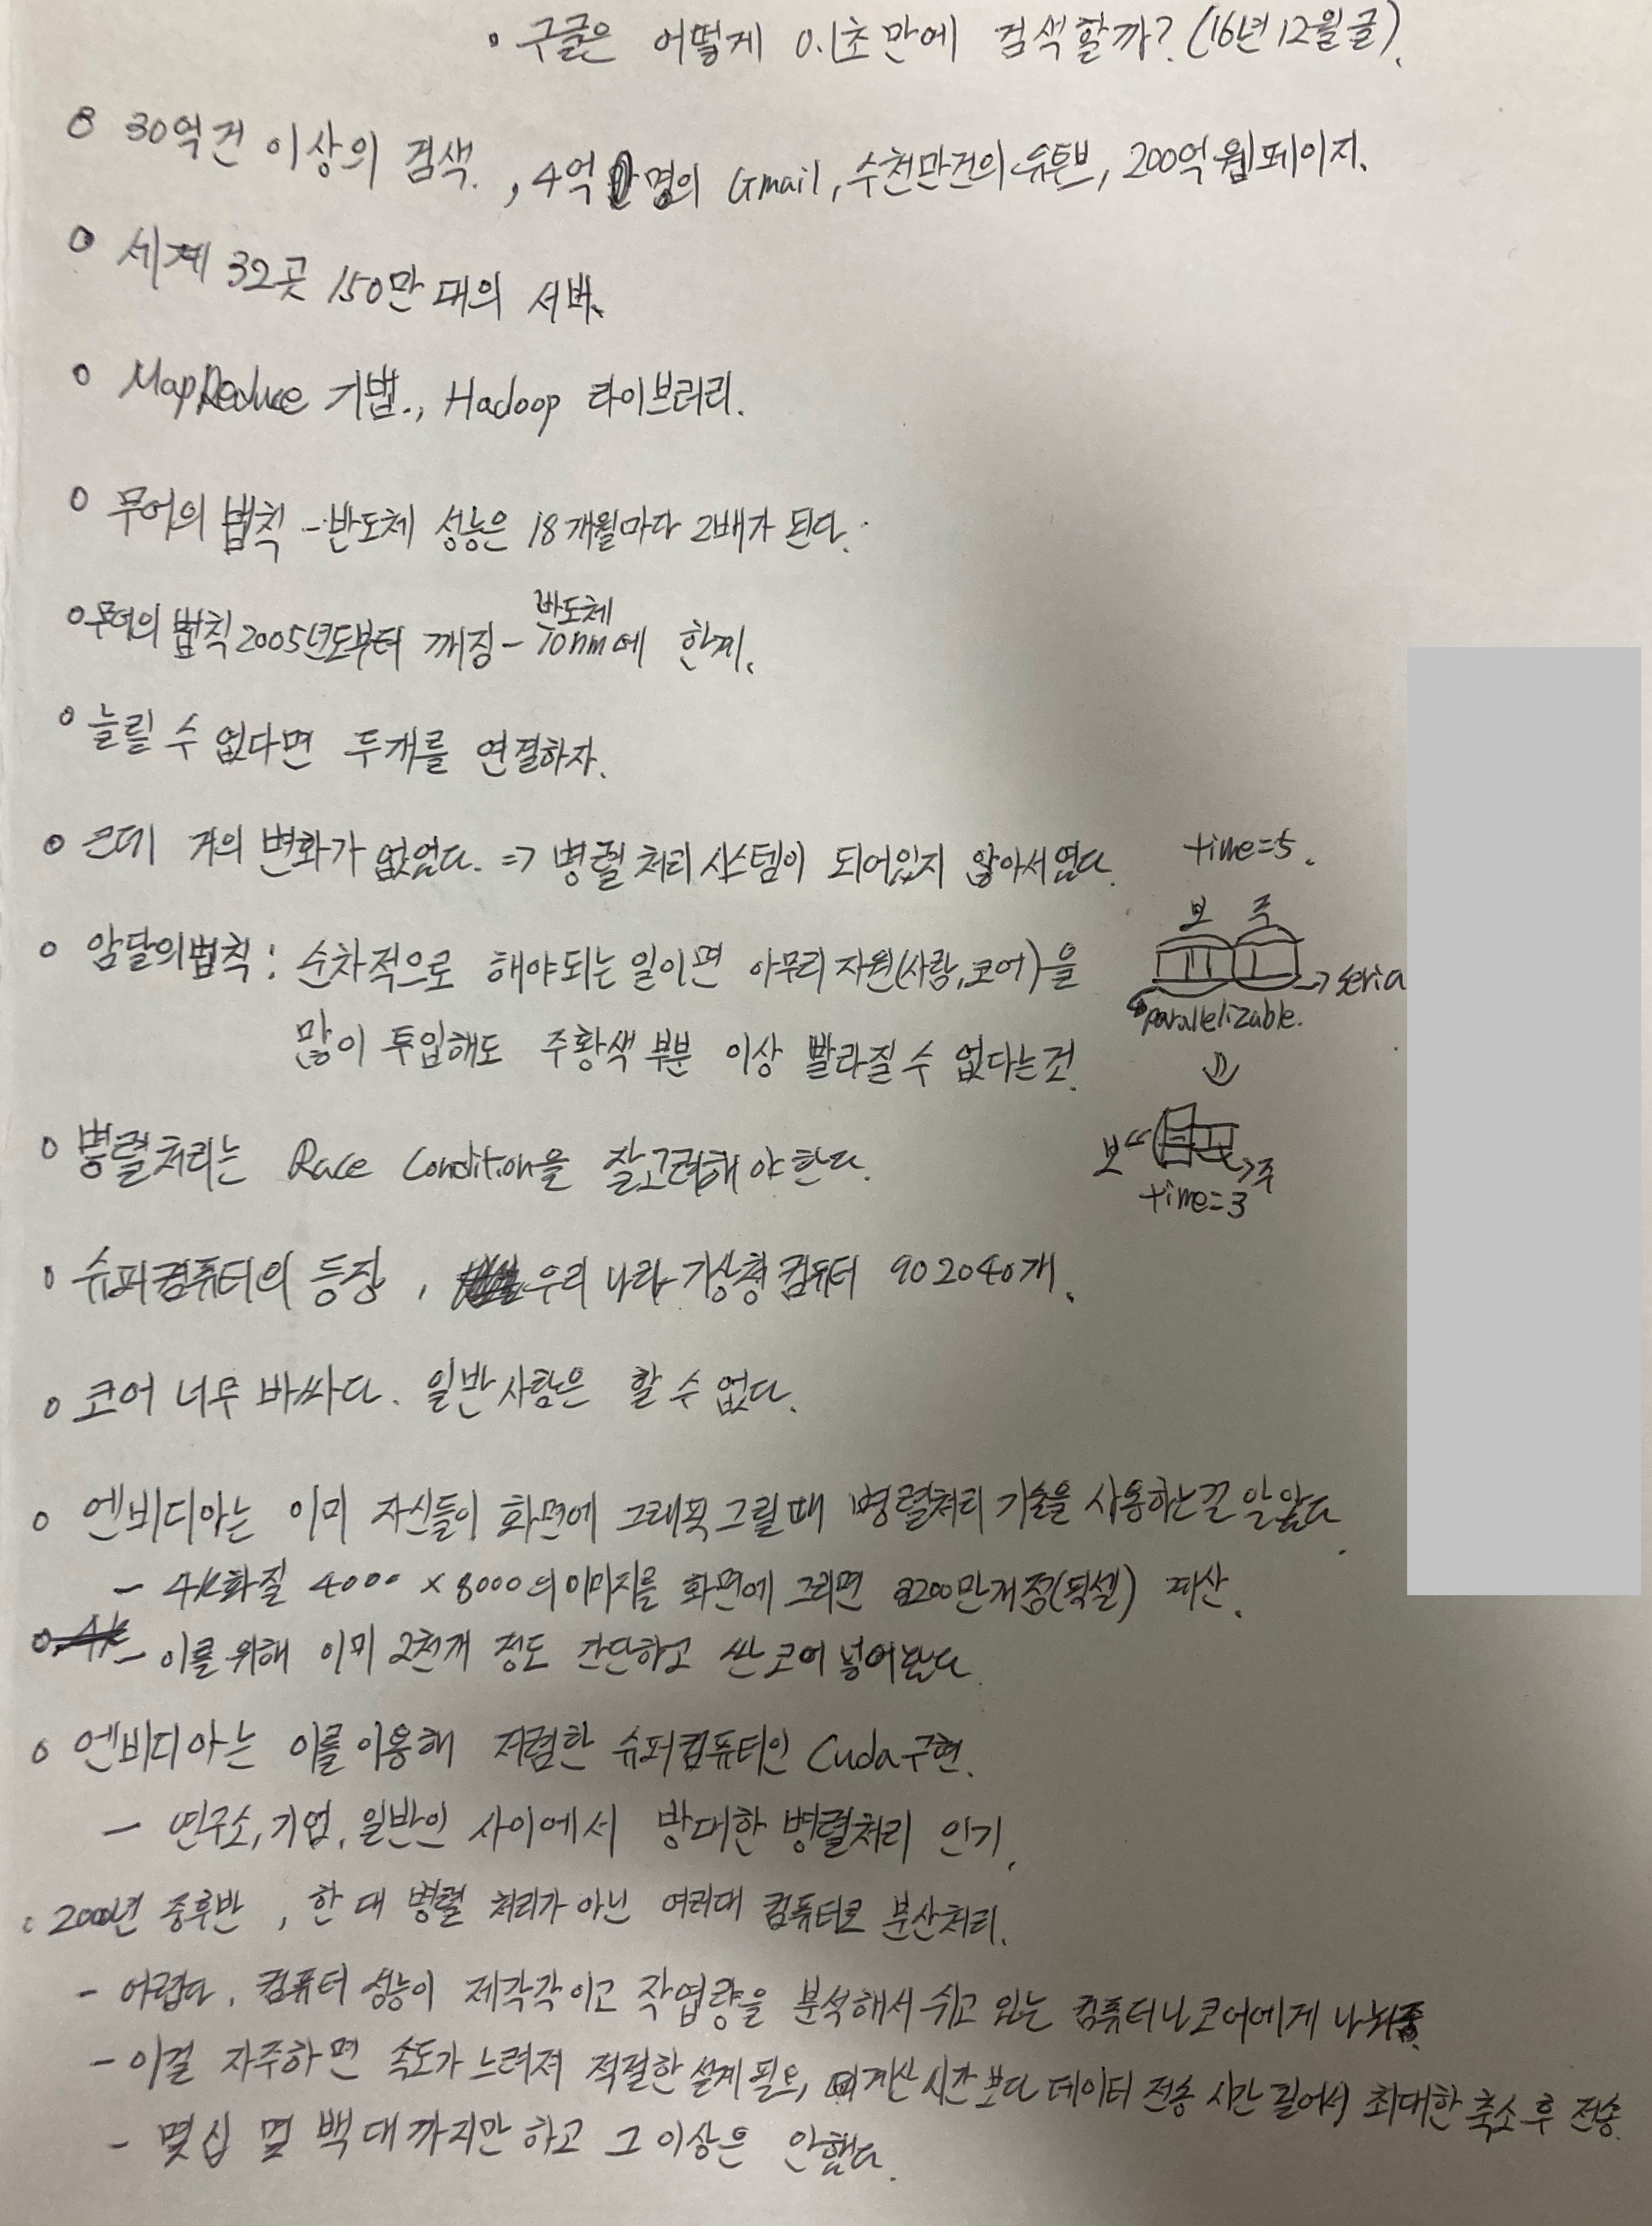 구글은 어떻게 0.1초만에 검색할까? (16년 12월 글).
30억건 이상의 검색. , 4억 명의 Gmail, 수천만건의 유튜브, 200억 웹페이지.
세계 32곳 150만 대의 서버.
MapReduce 기법., Hadoop 라이브러리.
무어의 법칙 - 반도체 성능은 18개월마다 2배가 된다.
반도체
무어의 법칙 2005년도부터 깨짐 - 10nm에 한계.
늘릴 수 없다면 두개를 연결하자.
근데 거의 변화가 없었다. => 병렬 처리 시스템이 되어있지 않아서였다.
time=5.
보 주
암달의 법칙 : 순차적으로 해야되는 일이면 아무리 자원(사람, 코어)을
→ seria
parallelizable.
많이 투입해도 주황색 부분 이상 빨라질 수 없다는 것.
병렬처리는 Race Condition을 잘 고려해야 한다.
보 주
time=3
슈퍼컴퓨터의 등장 , 우리 나라 기상청 컴퓨터 902040개.
코어 너무 비싸다. 일반 사람은 할 수 없다.
엔비디아는 이미 자신들이 화면에 그래픽 그릴때 병렬처리 기술을 사용하는걸 알았다.
- 4k화질 4000 x 8000의 이미지를 화면에 그리면 3200만개 점(픽셀) 계산.
- 이를 위해 이미 2천개 정도 간단하고 싼 코어 넣어놨다.
엔비디아는 이를 이용해 저렴한 슈퍼컴퓨터인 Cuda 구현.
- 연구소, 기업, 일반인 사이에서 방대한 병렬처리 인기.
2000년 중후반 , 한 대 병렬 처리가 아닌 여러대 컴퓨터로 분산처리.
- 어렵다. 컴퓨터 성능이 제각각이고 작업량을 분석해서 쉬고 있는 컴퓨터나 코어에게 나눠줌.
- 이걸 자주하면 속도가 느려져 적절한 설계 필요, 계산 시간 보다 데이터 전송 시간 길어서 최대한 축소 후 전송.
- 몇 십 몇 백 대 까지만 하고 그 이상은 안했다.